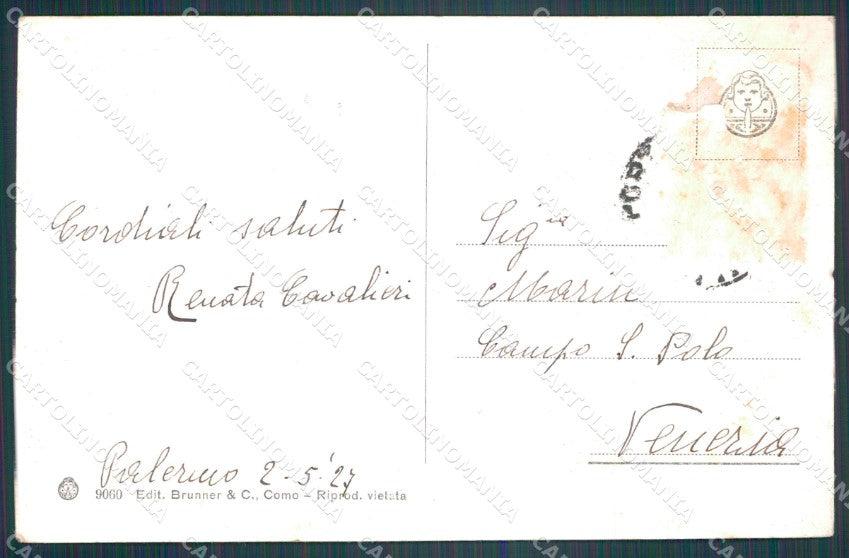 Cordiali saluti
Renata Cavalieri
Palermo 2-5-'27
9060 Edit. Brunner & C., Como – Riprod. vietata
Sig.na
Marin
Campo S. Polo
Venezia
CARTOLINOMANIA